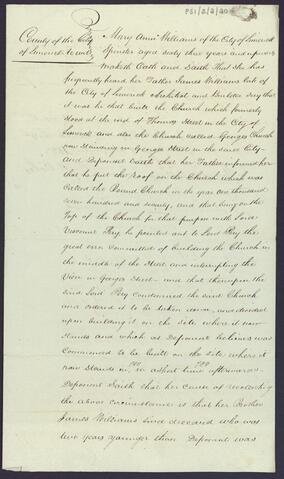 PSI/2/2/20
County of the City
of Limerick to wit
Mary Anne Williams of the City of Limerick
Spinster aged sixty three years and upwards
maketh Oath and Saith That She has
frequently heard her Father James Williams late of
the City of Limerick Architect and Builder Say that
it was he that built the Church which formerly
stood at the end of Thomas Street in the City of
Limerick and also the Church called Georges Church
now standing in Georges Street in the said City
And Deponent saith that her Father informed her
that he put the Roof on the Church which was
called the Round Church in the year one thousand
seven hundred and seventy, and that being on the
Top of the Church for that purpose with Lord
Viscount Pery he pointed out to Lord Pery the
great error Committed of building the Church in
the middle of the Street and interrupting the
View in Georges Street – and that thereupon the
said Lord Pery Condemned the said Church
and ordered it to be taken down, and decided
upon building it on the site where it now
stands and which as Deponent believes was
Commenced to be built on the site where it
now stands in a short time afterwards.
Deponent Saith that her cause of
the above circumstance is that her Brother
James Williams since deceased who was
two years younger than Deponent was